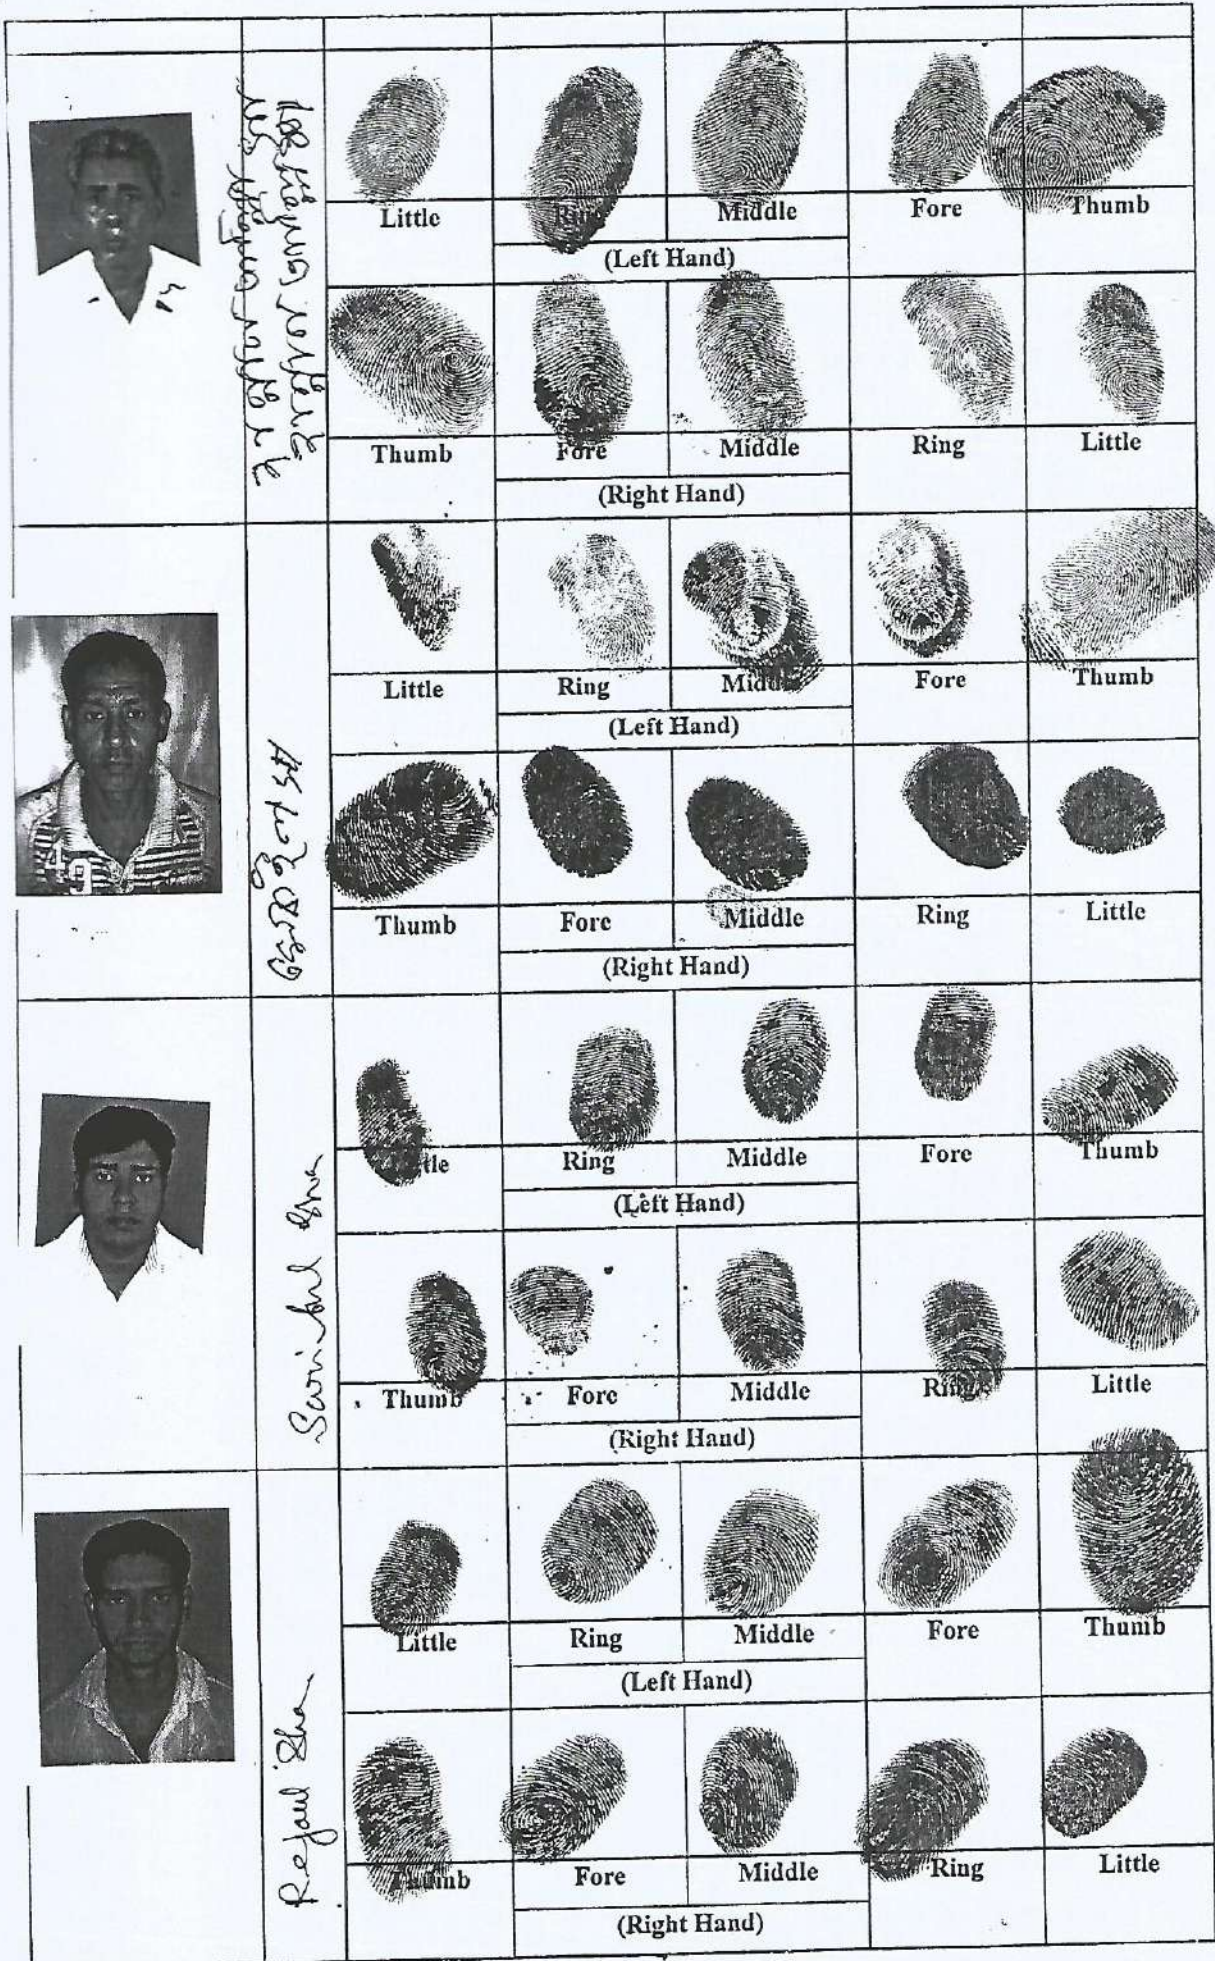 Little Ring Middle Fore Thumb
(Left Hand)
Thumb Fore Middle Ring Little
(Right Hand)
Little Ring Middle Fore Thumb
(Left Hand)
Thumb Fore Middle Ring Little
(Right Hand)
49
Little Ring Middle Fore Thumb
(Left Hand)
Thumb Fore Middle Ring Little
(Right Hand)
Little Ring Middle Fore Thumb
(Left Hand)
Rejaul Sha
Thumb Fore Middle Ring Little
(Right Hand)